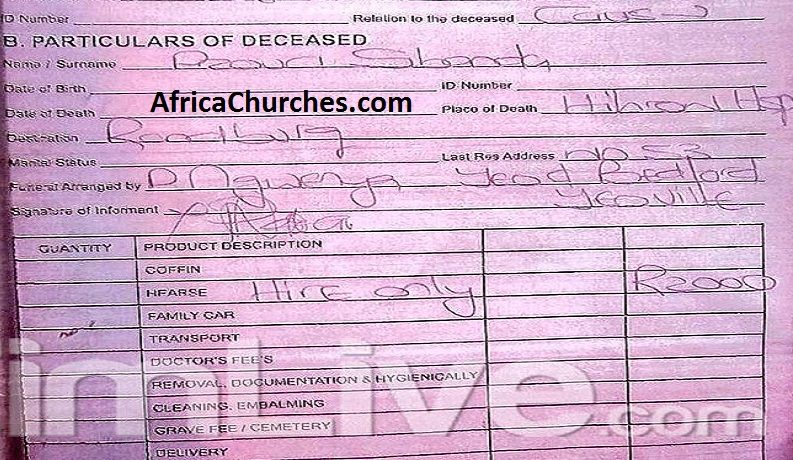 ID Number Relation to the deceased
B. PARTICULARS OF DECEASED
Name / Surname
Date of Birth ID Number
AfricaChurches.com
Date of Death Place of Death
Destination
Marital Status Last Res Address No 53
Funeral Arranged by D Ngwenya Bedford
Signature of Informant Yeoville
QUANTITY PRODUCT DESCRIPTION
COFFIN
HEARSE Hire only R2000
FAMILY CAR
TRANSPORT
DOCTOR'S FEE'S
REMOVAL, DOCUMENTATION & HYGIENICALLY
CLEANING, EMBALMING
GRAVE FEE / CEMETERY
DELIVERY
imLive.com